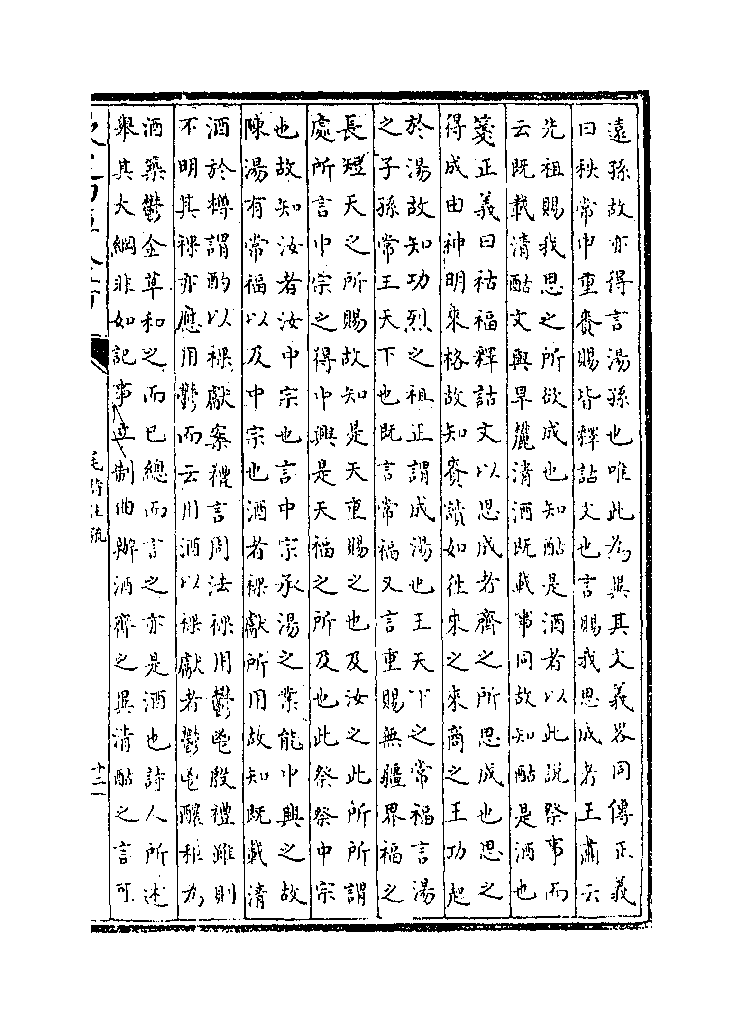 遠孫故亦得言湯孫也唯此為異其文義畧同傳正義
曰秩常申重賚賜皆釋詁文也言賜我思成者王肅云
先祖賜我思之所欲成也知酤是酒者以此說祭事而
云既載清酤文與旱麓清酒既載事同故知酤是酒也
箋正義曰祜福釋詁文以思成者齊之所思成也思之
得成由神明來格故知賚讀如往來之來商之王功起
於湯故知功烈之祖正謂成湯也王天下之常福言湯
之子孫常王天下也既言常福又言重賜無疆界福之
長短天之所賜故知是天重賜之也及汝之此所所謂
處所言中宗之得中興是天福之所及也此祭祭中宗
也故知汝者汝中宗也言中宗承湯之業能中興之故
陳湯有常福以及中宗也酒者祼獻所用故知既載清
酒於樽謂酌以祼獻案禮言周法祼用鬱鬯殷禮雖則
不明其祼亦應用鬱而云用酒以祼獻者鬱鬯釀秬為
酒築鬱金草和之而已總而言之亦是酒也詩人所述
舉其大綱非如記事立制曲辨酒齊之異清酤之言可
毛詩注疏
十二